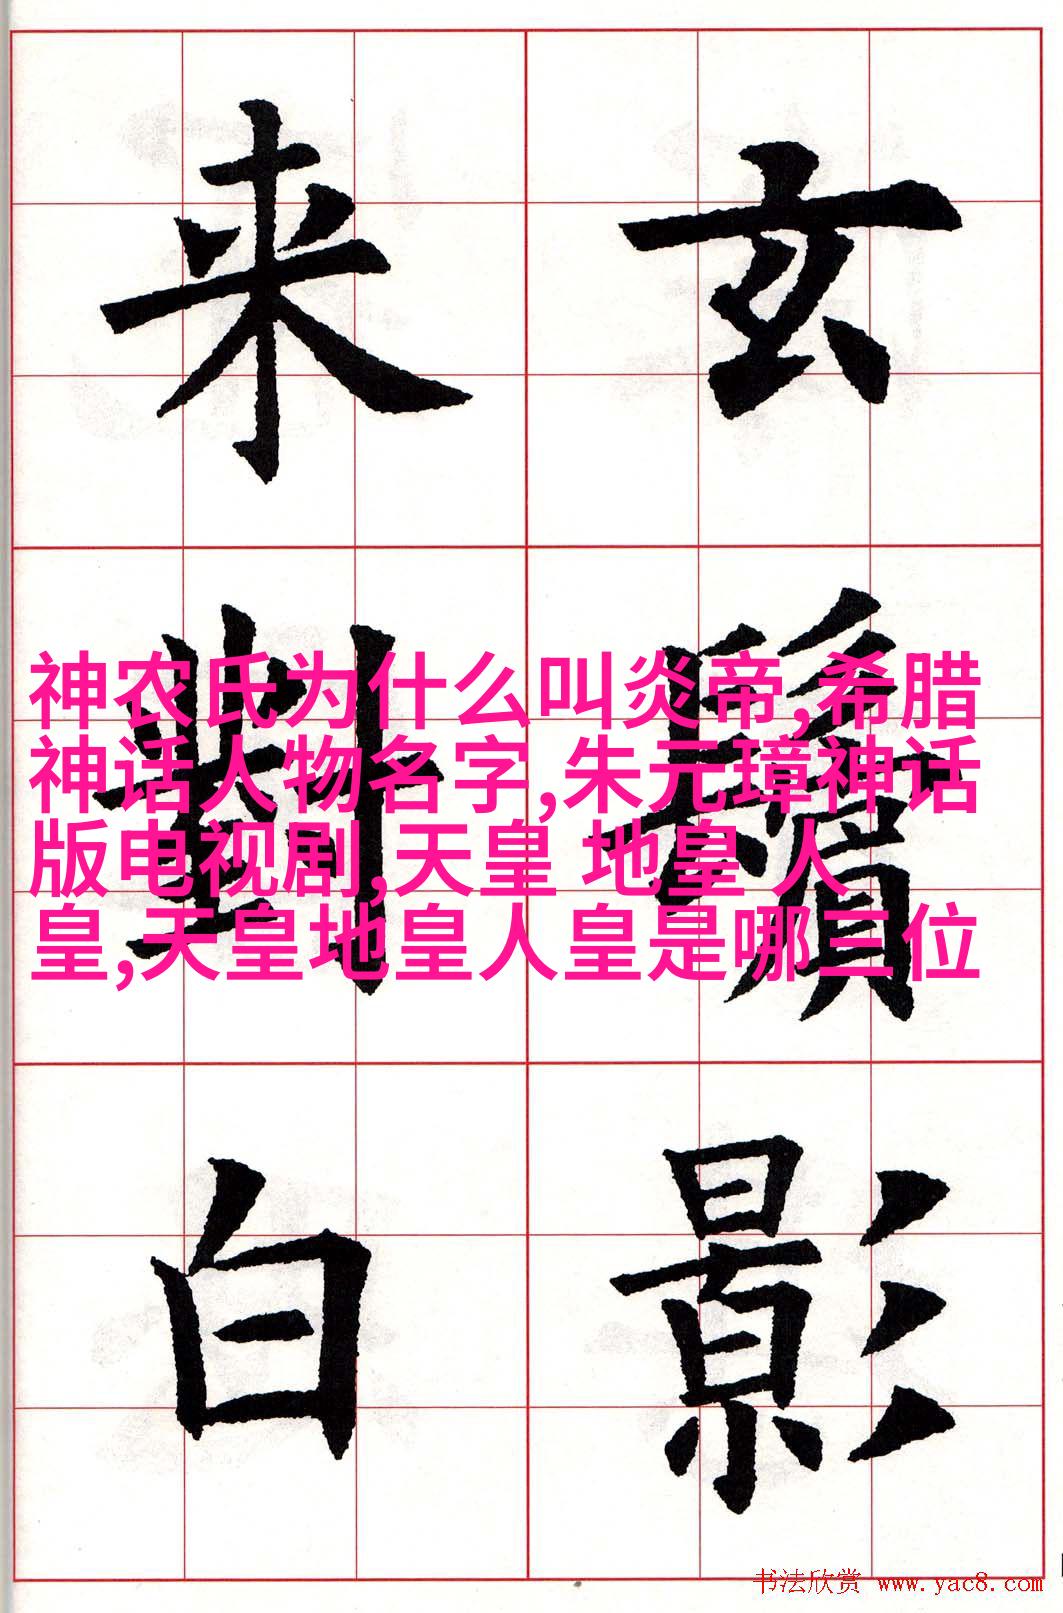 玄鬢影
来對白
神农氏为什么叫炎帝,希腊
神话人物名字,朱元璋神话
版电视剧,天皇 地皇 人
皇,天皇地皇人皇是哪三位
书法欣赏 www.yac8.com